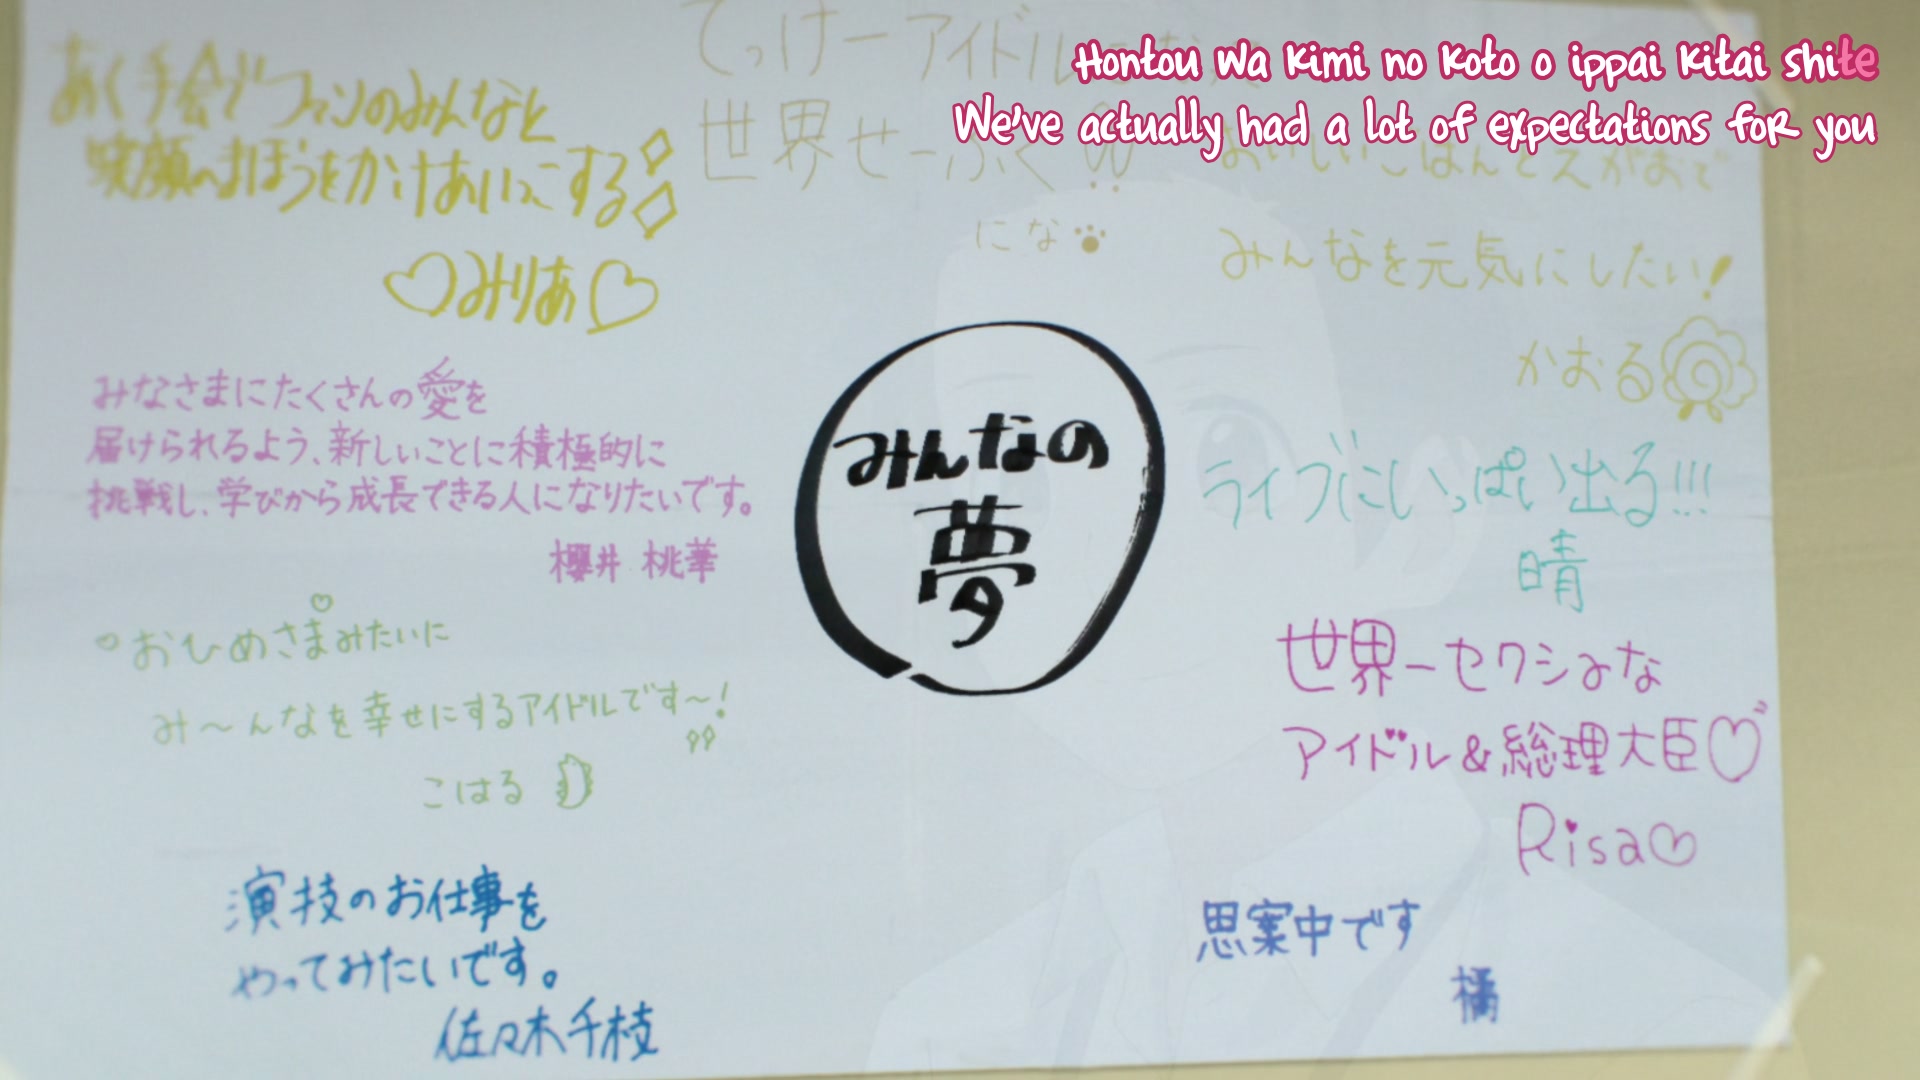 Hontou wa kimi no koto o ippai kitai shite
We've actually had a lot of expectations for you
あく手会でファンのみんなと
笑顔のまほうをかけあいっこする
みりあ
てっけーアイドルになって
世界せーふく
にな
おいしいごはんとえがおで
みんなを元気にしたい!
かおる
みなさまにたくさんの愛を
届けられるよう、新しいことに積極的に
挑戦し、学びから成長できる人になりたいです。
櫻井 桃華
みんなの
夢
ライブにいっぱい出る!!!
晴
おひめさまみたいに
み〜んなを幸せにするアイドルです〜!
こはる
世界一セクシーな
アイドル&総理大臣
Risa
演技のお仕事を
やってみたいです。
佐々木千枝
思案中です
橘